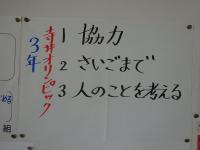 3年
寺井オリンピック
1 協力
2 さいごまで
3 人のことを考える
組